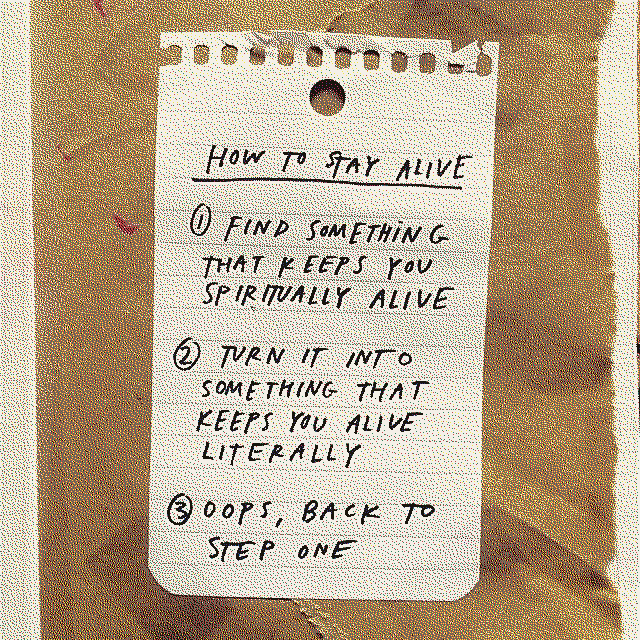 HOW TO STAY ALIVE
① FIND SOMETHING
THAT KEEPS YOU
SPIRITUALLY ALIVE
② TURN IT INTO
SOMETHING THAT
KEEPS YOU ALIVE
LITERALLY
③ OOPS, BACK TO
STEP ONE